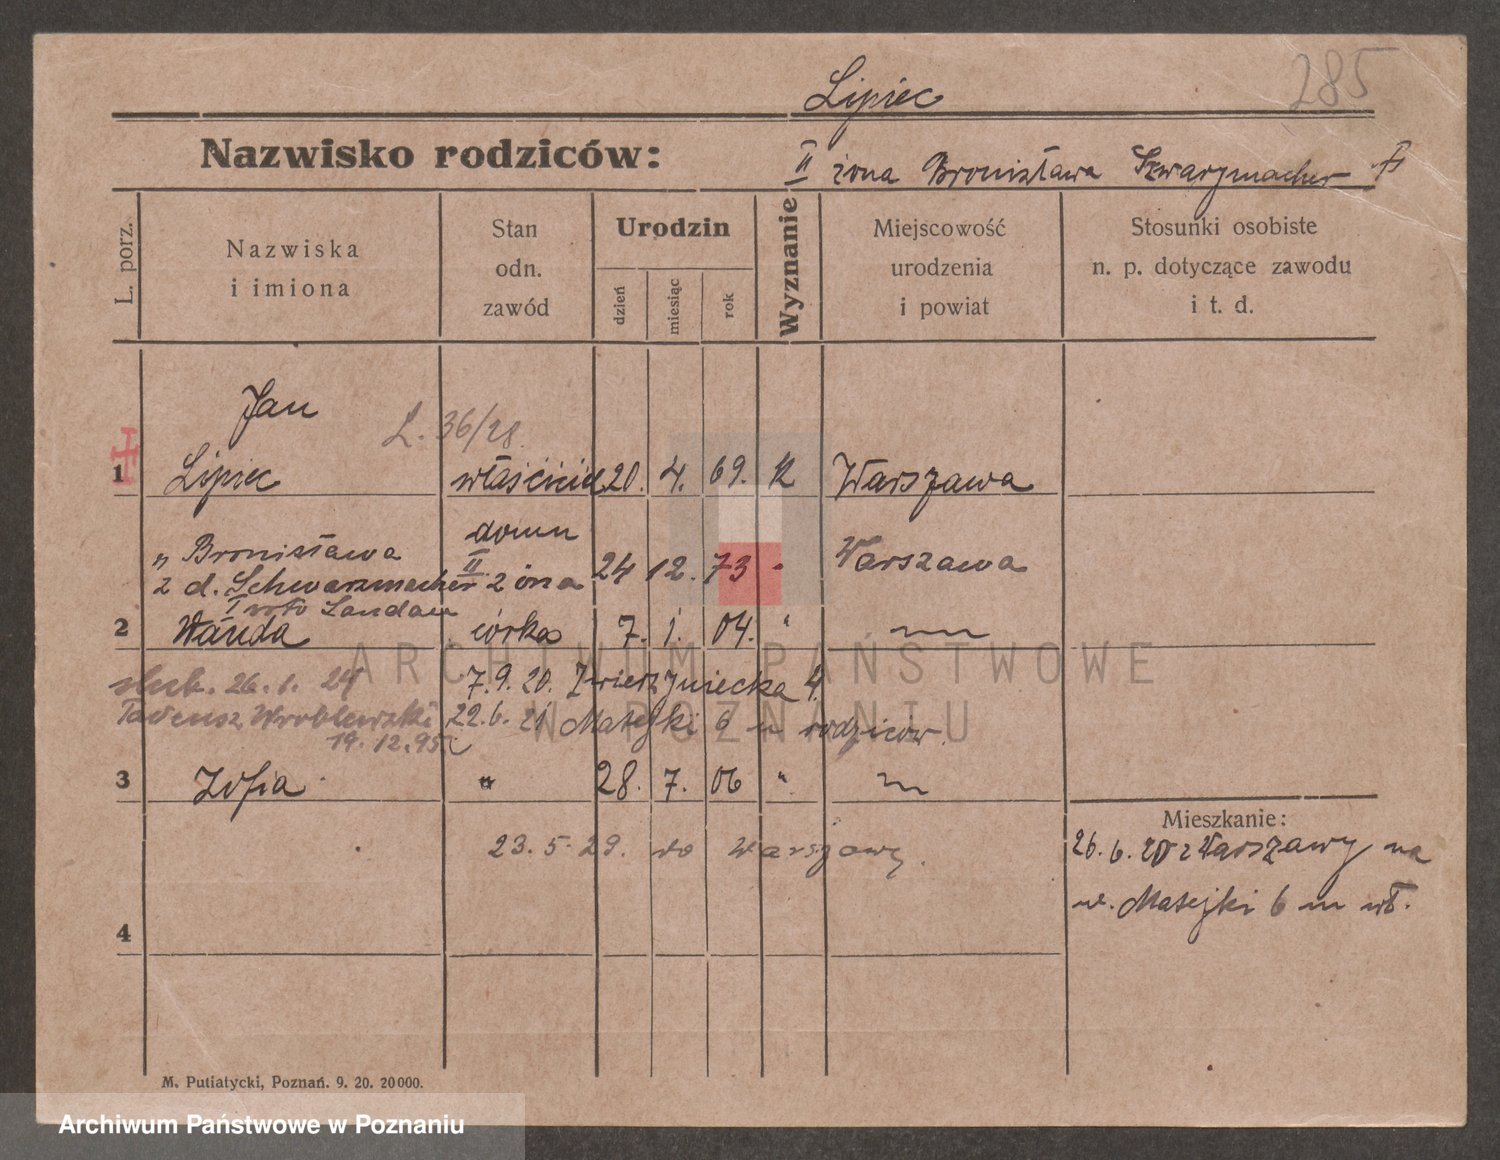 285
Lipiec
Nazwisko rodziców: II żona Bronisława Szwarzmacher
L. porz.
Nazwiska i imiona
Stan odn. zawód
Urodzin
dzień miesiąc rok
Wyznanie
Miejscowość urodzenia i powiat
Stosunki osobiste n. p. dotyczące zawodu i t. d.
Jan
L. 36/28
1 Lipiec właściciel 20. 4. 69. K Warszawa
domu
" Bronisława II 24 12. 73 " Warszawa
z d. Schwarzmacher żona
I voto Landau
2 Wanda córka 7. 1. 04. "
ślub. 26. 1. 24 7.9.20. Zwierzyniecka 4.
Tadeusz Wroblewski 22.6.21 Matejki 6 u rodziców.
19.12.95
3 Zofia " 28. 7. 06 "
23.5.29. do Warszawy.
Mieszkanie:
26.6.20 z Warszawy na
ul. Matejki 6 m wł.
4
M. Putiatycki, Poznań. 9. 20. 20000.
ARCHIWUM PAŃSTWOWE
W POZNANIU
Archiwum Państwowe w Poznaniu